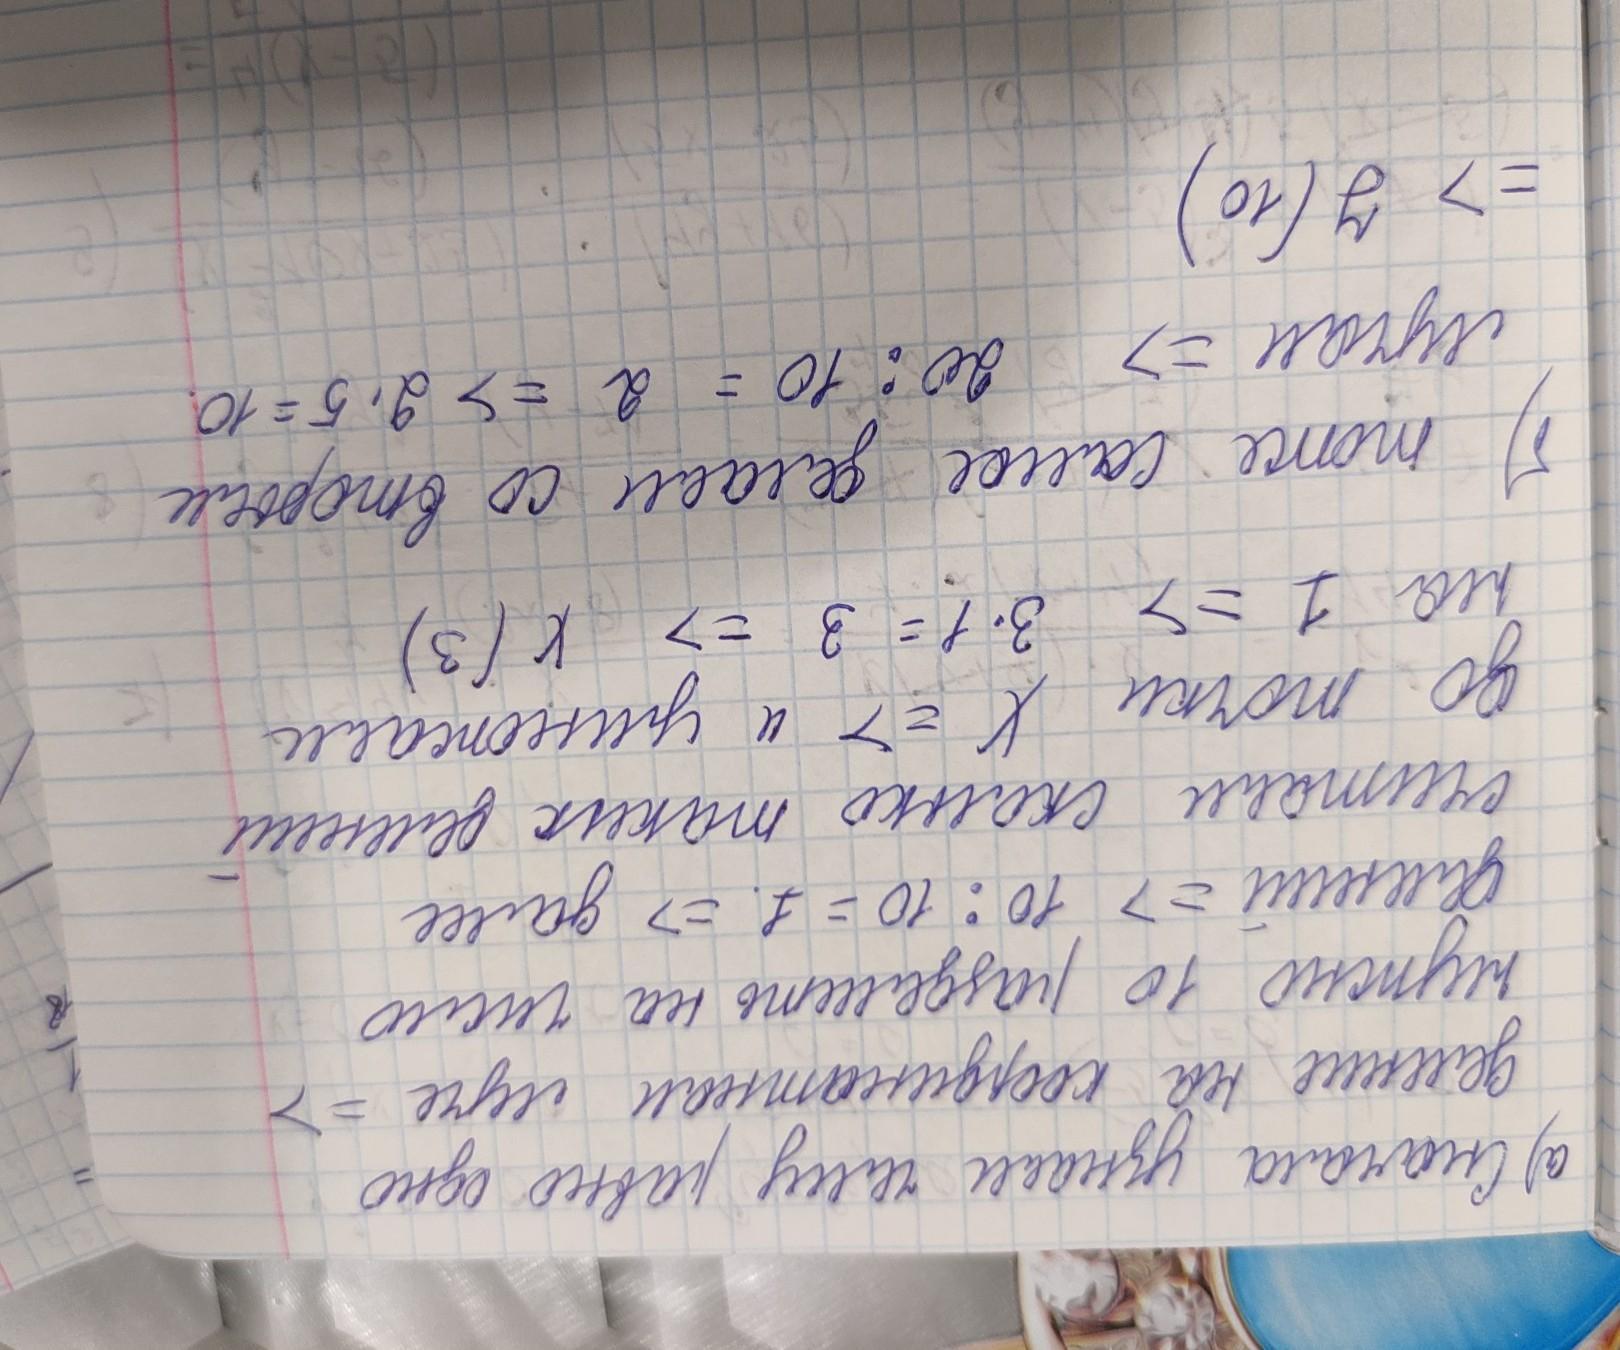 а) Сначала узнаем чему равно одно
деление на координатном луче =>
нужно 10 разделить на число
делений => 10 : 10 = 1. => далее
считаем сколько таких делений
до точки К => и умножаем
на 1 => 3 · 1 = 3 => К (3)
б) тоже самое делаем со вторым
лучам => 20 : 10 = 2 => 2 · 5 = 10
=> (10)